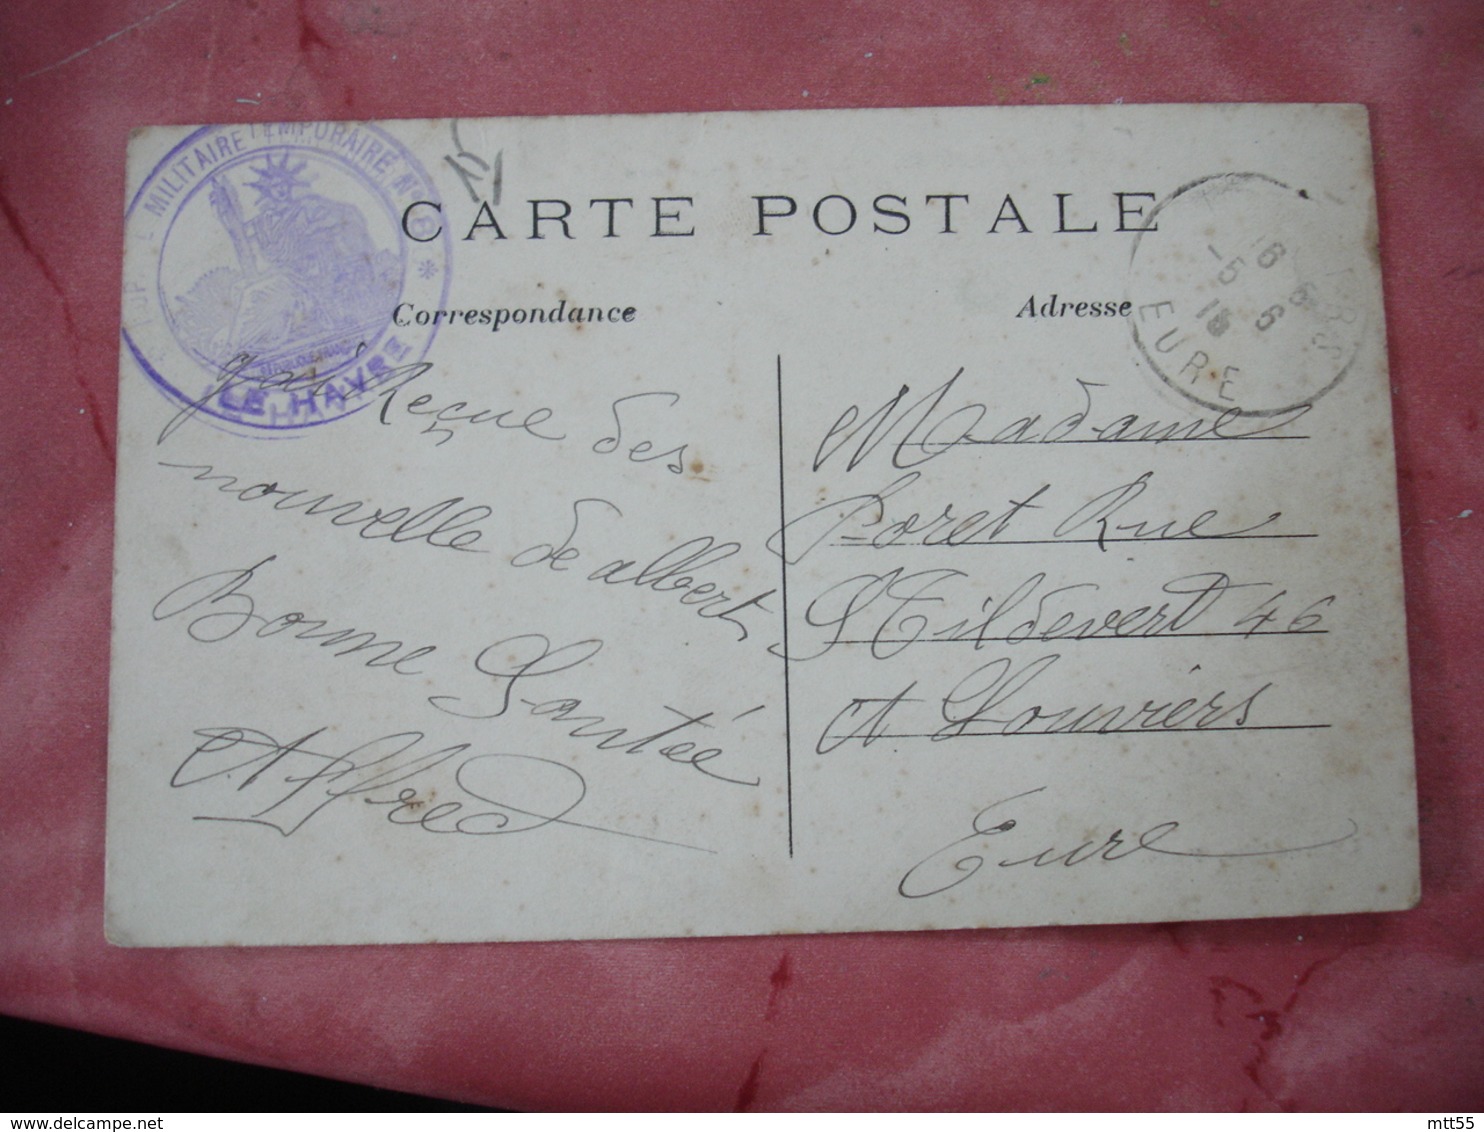 MILITAIRE TEMPORAIRE N°
LE HAVRE
CARTE POSTALE
Correspondance
Adresse
EURE
gai Reçue des
nouvelle de albert
Bonne Santée
Alfred
Madame
Poret Rue
St Hildevert 46
A Louviers
Eure
mtt55